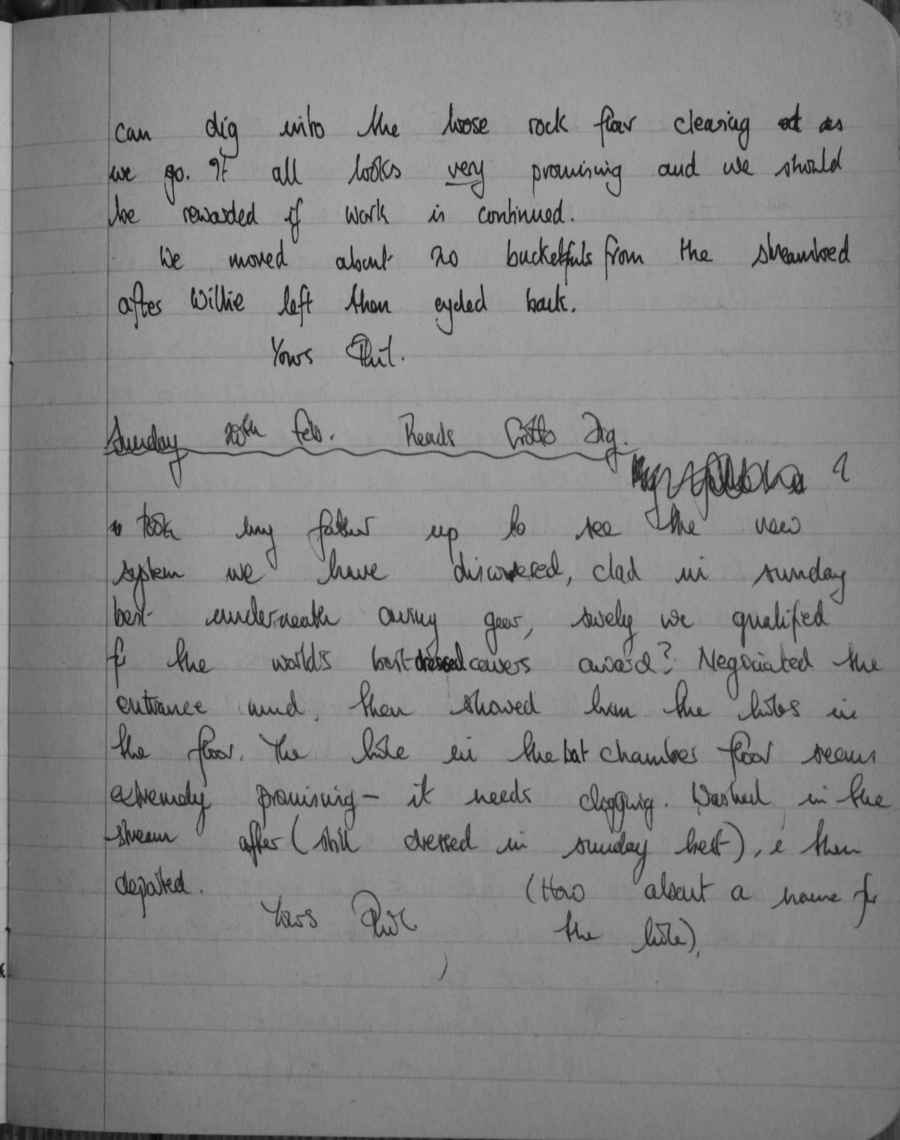 33
can dig into the loose rock floor clearing as
we go. It all looks very promising and we should
be rewarded if work is continued.
We moved about 20 bucketfuls from the streambed
after Willie left then cycled back.
Yours Phil.
Sunday 20th Feb. Reads Grotto Dig.
?
took my father up to see the new
system we have discovered, clad in sunday
best underneath caving gear, surely we qualified
for the worlds best dressed cavers award? Negociated the
entrance mud, then showed him the holes in
the floor. The hole in the bat chamber floor seems
extremely promising - it needs digging. Washed in the
stream after (still dressed in sunday best), & then
departed. (How about a name for
Yours Phil the hole),